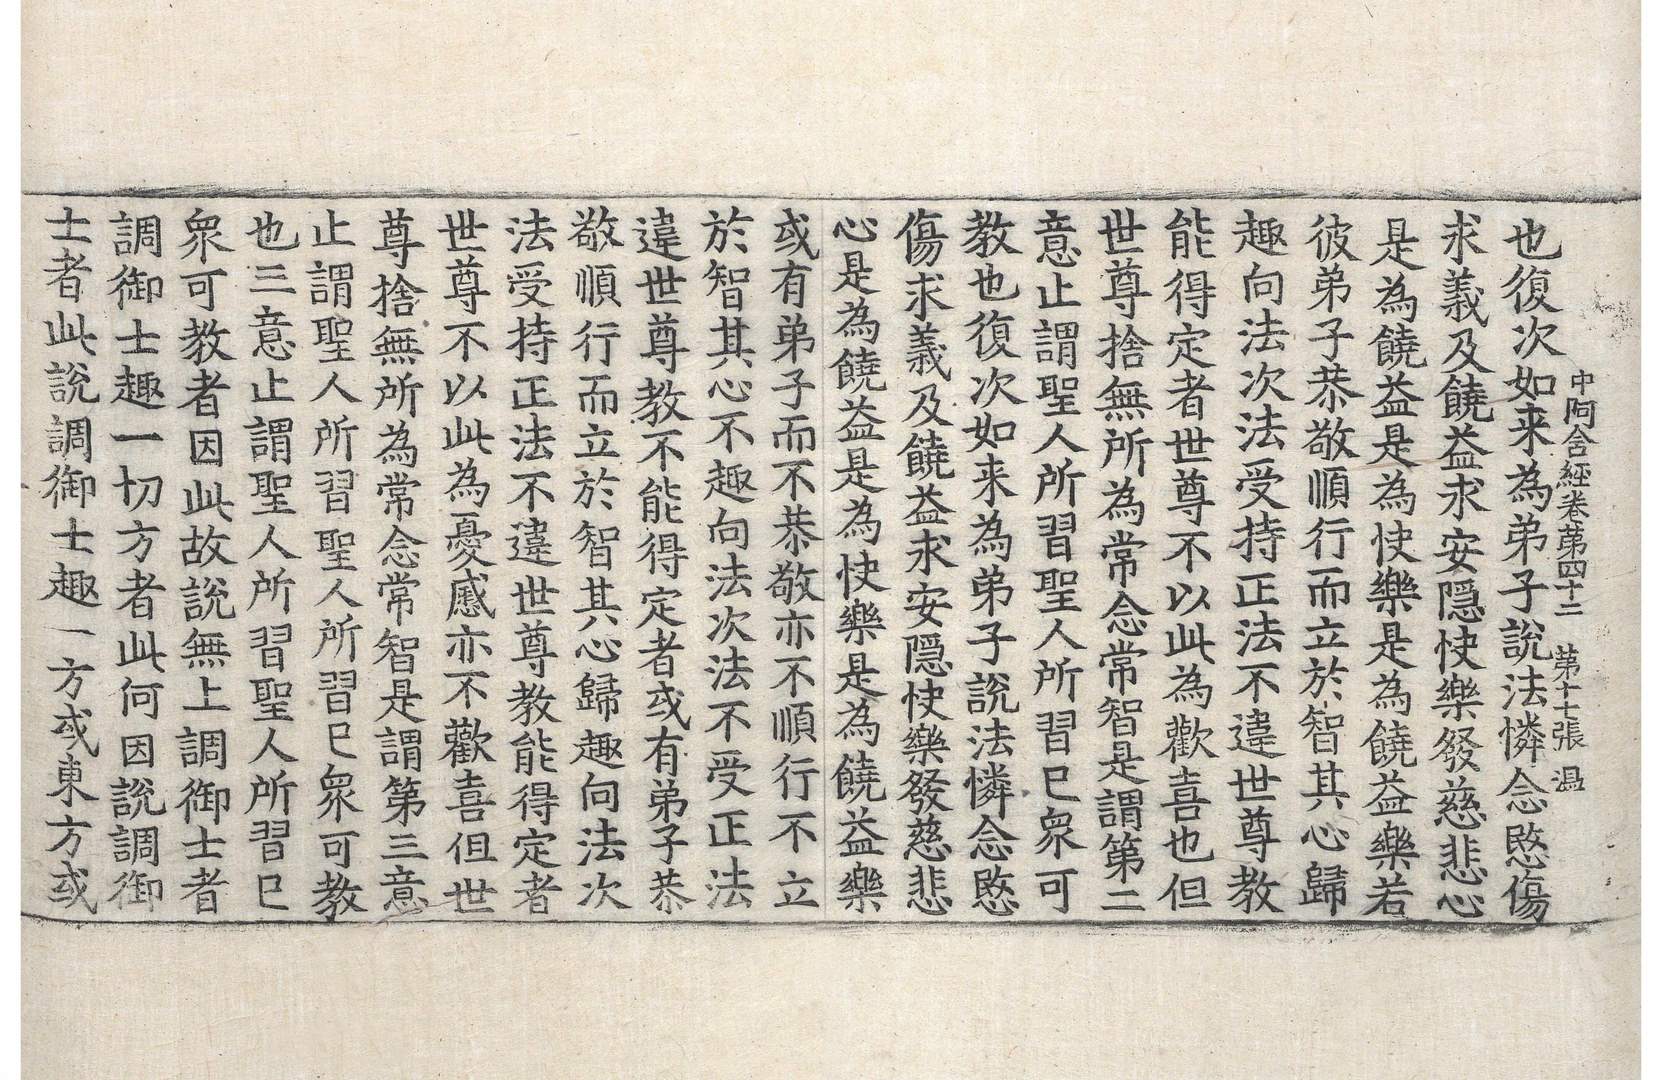 中阿含經卷苐四十二 苐十十張 温
也復次如来為弟子說法憐念愍傷
求義及饒益求安隱快樂發慈悲心
是為饒益是為快樂是為饒益樂若
彼弟子恭敬順行而立於智其心歸
趣向法次法受持正法不違世尊教
能得定者世尊不以此為歡喜也但
世尊捨無所為常念常智是謂第二
意止謂聖人所習聖人所習已衆可
教也復次如来為弟子說法憐念愍
傷求義及饒益求安隱快樂發慈悲
心是為饒益是為快樂是為饒益樂
或有弟子而不恭敬亦不順行不立
於智其心不趣向法次法不受正法
違世尊教不能得定者或有弟子恭
敬順行而立於智其心歸趣向法次
法受持正法不違世尊教能得定者
世尊不以此為憂慼亦不歡喜但世
尊捨無所為常念常智是謂第三意
止謂聖人所習聖人所習已衆可教
也三意止謂聖人所習聖人所習已
衆可教者因此故說無上調御士者
調御士趣一切方者此何因說調御
士者此說調御士趣一方或東方或